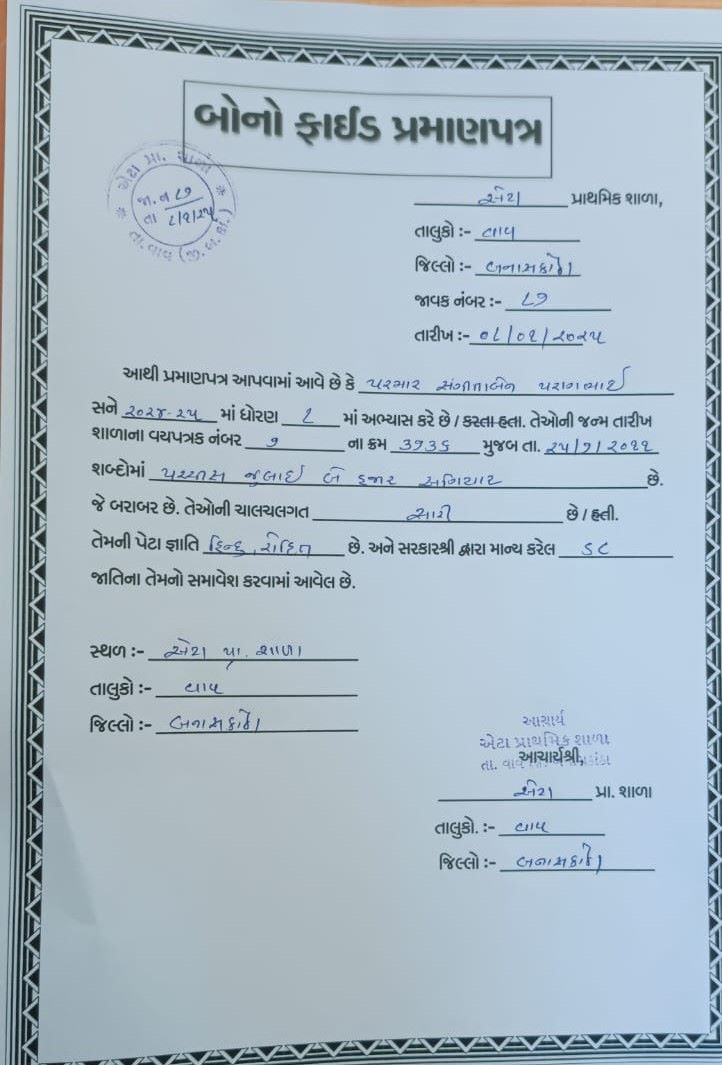 બોનો ફાઈડ પ્રમાણપત્ર
એટા પ્રા. શાળા
જા.નં ૮૭
તા ૮/૧/૨૫
તા. વાવ (જી.બ.કાં.)
એટા પ્રાથમિક શાળા,
તાલુકો :- વાવ
જિલ્લો :- બનાસકાંઠા
જાવક નંબર :- ૮૭
તારીખ :- ૦૮/૦૧/૨૦૨૫
આથી પ્રમાણપત્ર આપવામાં આવે છે કે પરમાર સંગીતાબેન પરાગભાઈ
સને ૨૦૨૪-૨૫ માં ધોરણ ૮ માં અભ્યાસ કરે છે / કરતા હતા. તેઓની જન્મ તારીખ
શાળાના વયપત્રક નંબર ૭ ના ક્રમ ૩૧૩૬ મુજબ તા. ૨૫/૭/૨૦૧૧
શબ્દોમાં પચ્ચીસ જુલાઈ બે હજાર અગિયાર છે.
જે બરાબર છે. તેઓની ચાલચલગત સારી છે / હતી.
તેમની પેટા જ્ઞાતિ હિન્દુ, રોહિત છે. અને સરકારશ્રી દ્વારા માન્ય કરેલ SC
જાતિના તેમનો સમાવેશ કરવામાં આવેલ છે.
સ્થળ :- એટા પ્રા. શાળા
તાલુકો :- વાવ
જિલ્લો :- બનાસકાંઠા
આચાર્ય
એટા પ્રાથમિક શાળા
તા. વાવ
આચાર્યશ્રી,
એટા પ્રા. શાળા
તાલુકો. :- વાવ
જિલ્લો :- બનાસકાંઠા